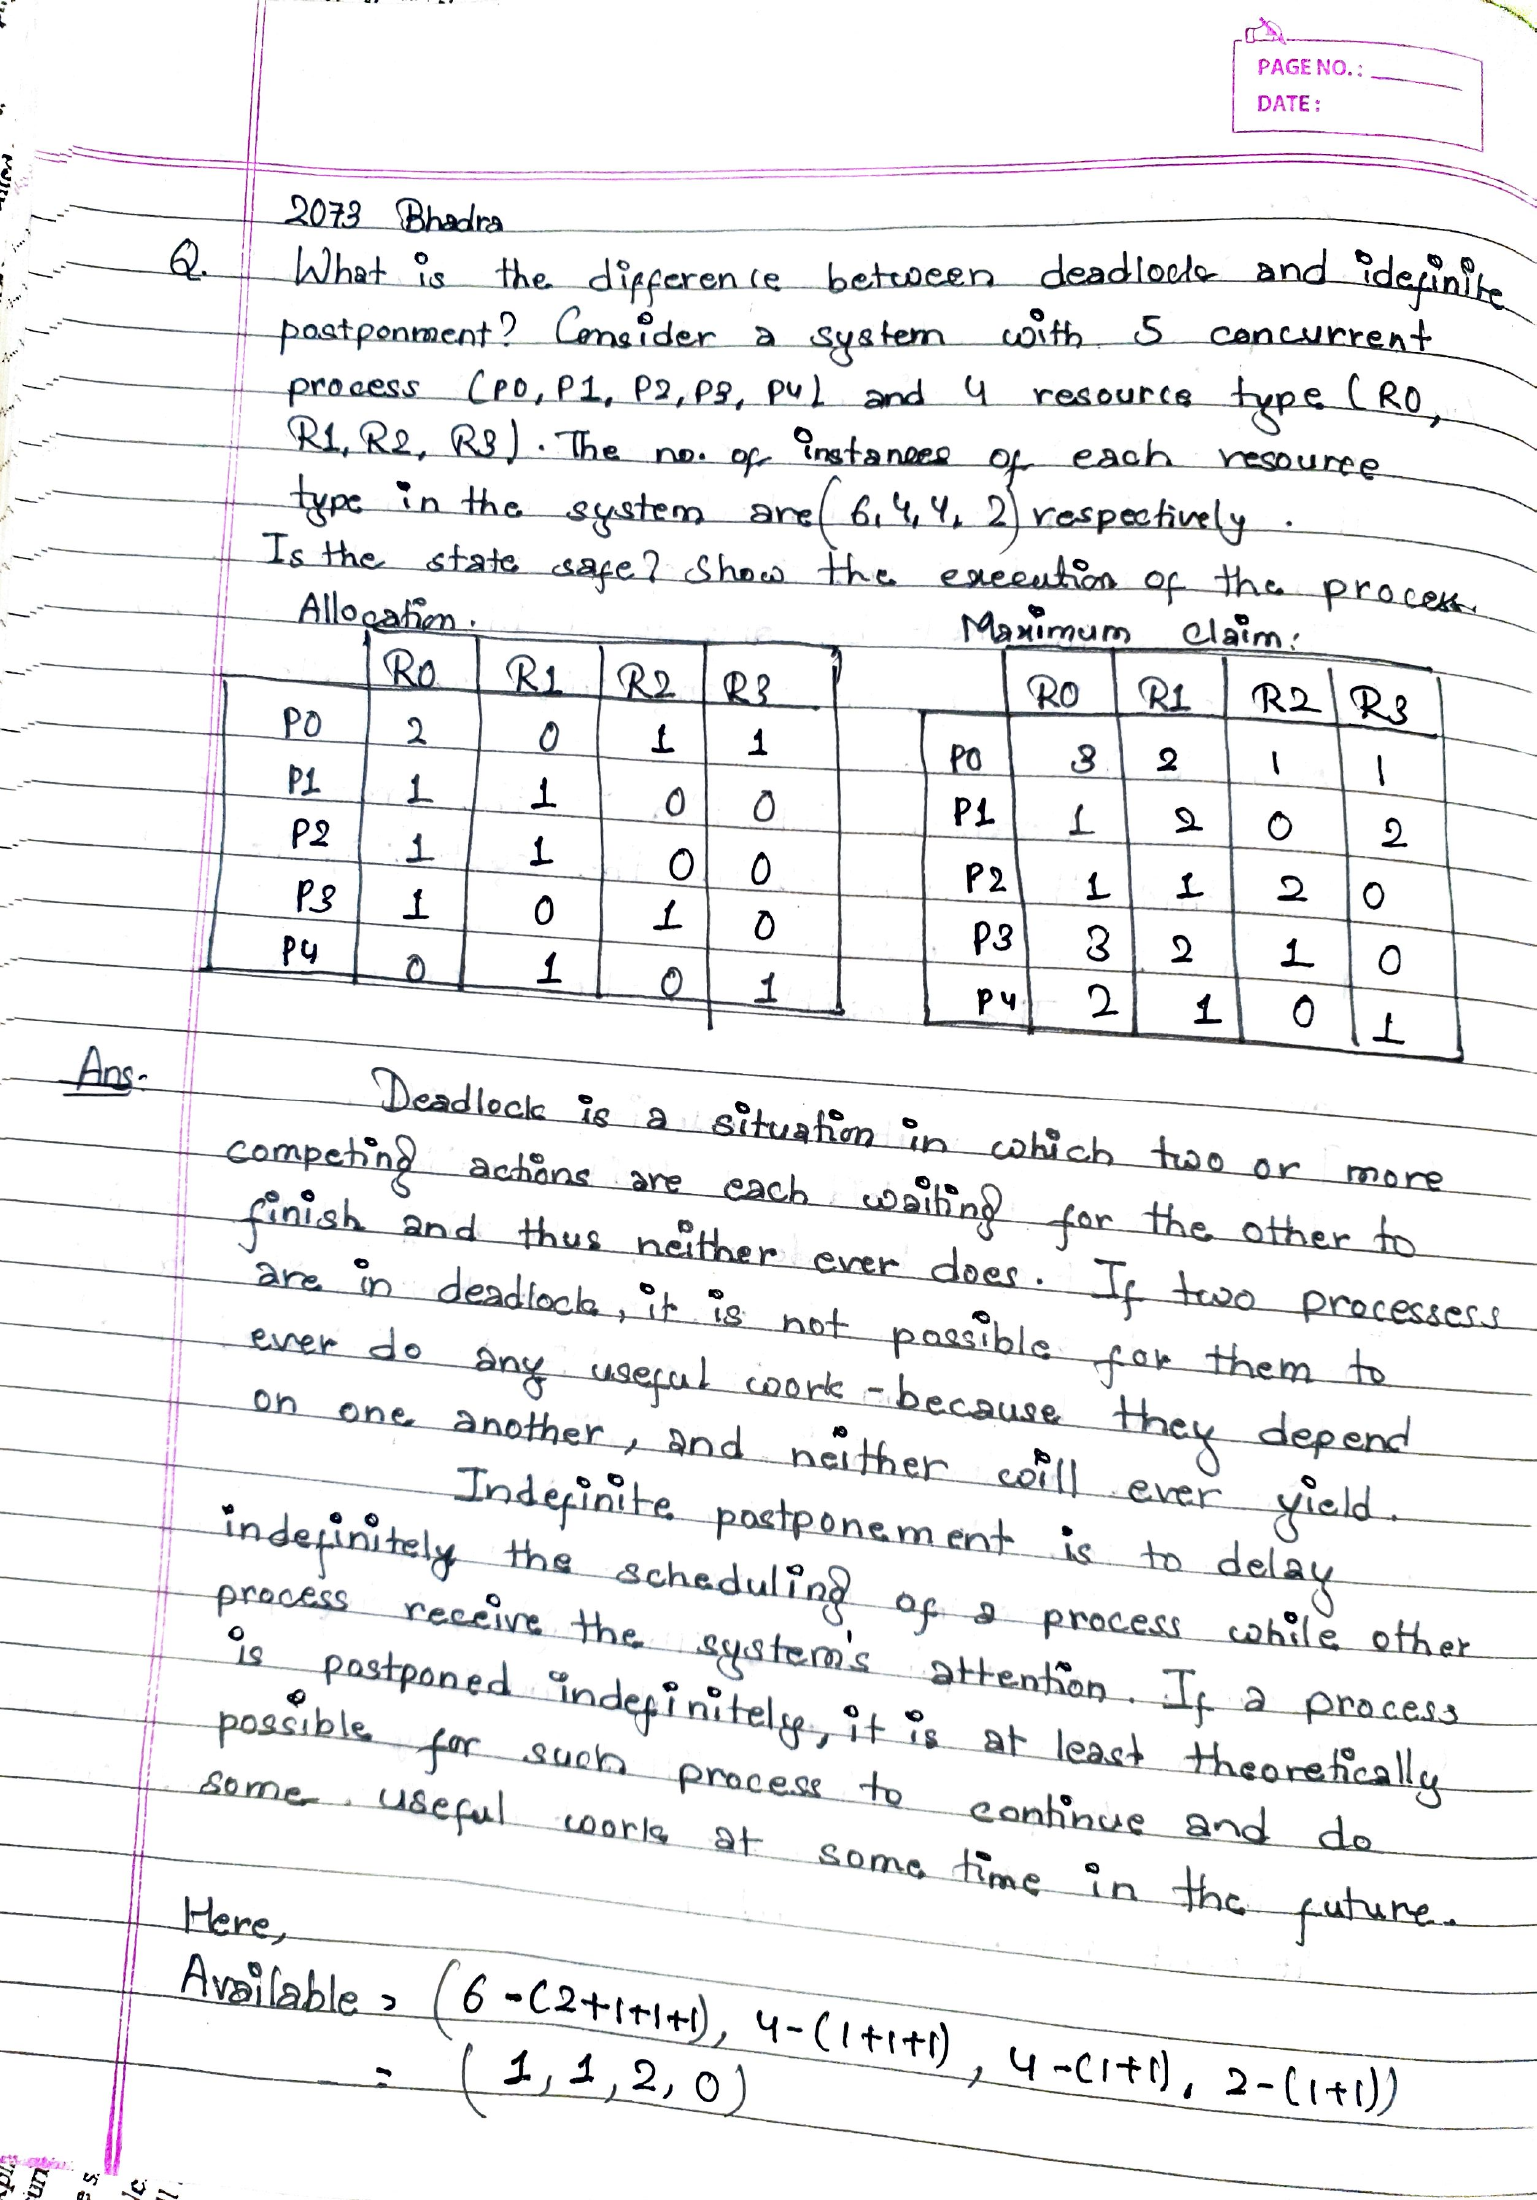 PAGE NO.:
DATE:
2073 Bhadra
Q. What is the difference between deadlock and idefinite
postponment? Consider a system with 5 concurrent
process (P0, P1, P2, P3, P4) and 4 resource type (R0,
R1, R2, R3). The no. of instances of each resource
type in the system are (6, 4, 4, 2) respectively.
Is the state safe? Show the execution of the process.
Allocation. Maximum Claim:
R0 R1 R2 R3 R0 R1 R2 R3
P0 2 0 1 1 P0 3 2 1 1
P1 1 1 0 0 P1 1 2 0 2
P2 1 1 0 0 P2 1 1 2 0
P3 1 0 1 0 P3 3 2 1 0
P4 0 1 0 1 P4 2 1 0 1
Ans. Deadlock is a situation in which two or more
competing actions are each waiting for the other to
finish and thus neither ever does. If two processess
are in deadlock, it is not possible for them to
ever do any useful work - because they depend
on one another, and neither will ever yield.
Indefinite postponement is to delay
indefinitely the scheduling of a process while other
process receive the system's attention. If a process
is postponed indefinitely, it is at least theoretically
possible for such process to continue and do
some useful work at some time in the future.
Here,
Available = (6-(2+1+1+1), 4-(1+1+1), 4-(1+1), 2-(1+1))
= (1, 1, 2, 0)